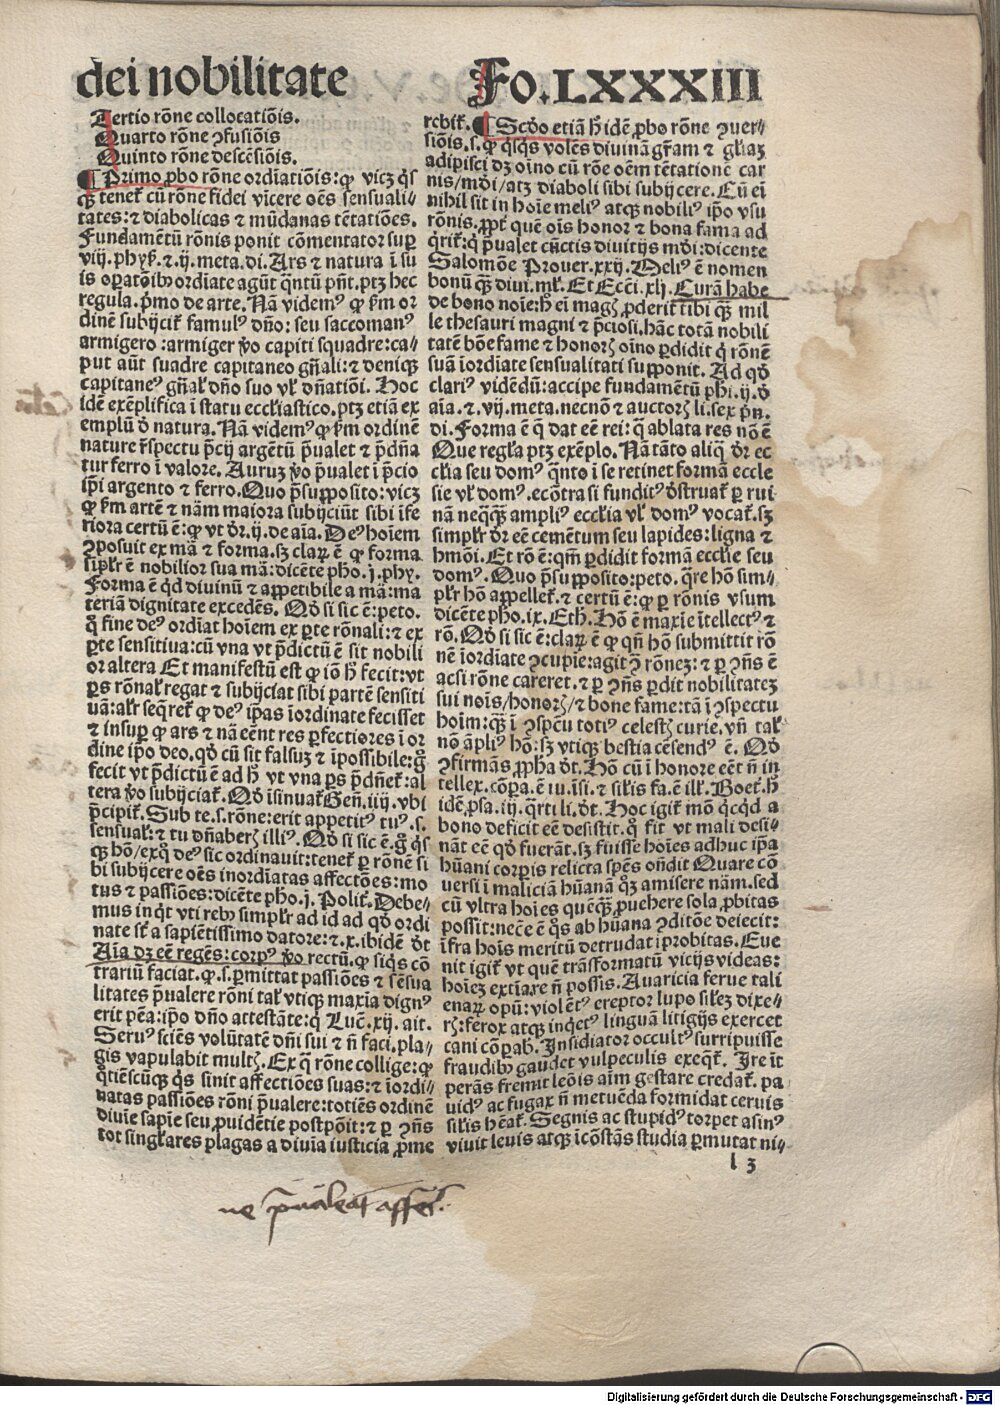 dei nobilitate
Fo. LXXXIII
Tertio rõne collocatiõis.
Quarto rõne ꝯfusiõis
Quinto rõne descẽsiõis.
¶ Primo ꝓbo rõne ordĩatiõis: ꝙ vicꝫ q̃s
tates: ⁊ diabolicas ⁊ mũdanas tẽtatiões.
Fundamẽtũ rõnis ponit cõmentator sup̱
is oꝑatõibꝰ ordiate agũt
regula. p̃mo de arte. Nã videmꝰ ꝙ ẜm or
dinẽ subijcit᷑ famulꝰ dño: seu saccomanꝰ
armigero: armiger ꝟo capiti squadre: ca-
put aũt suadre capitaneo gñali: ⁊ deniqꝫ
capitaneꝰ gñal᷑ dño suo vl᷑ dñatiõi. Hoc
idẽ exẽplifica ĩ statu ecclĩastico. ptꝫ etiã ex
emplũ ð natura. Nã videmꝰ ꝙ ẜm ordinẽ
nature r̃spectu p̃cij argẽtũ p̃ualet ⁊ p̃dña
tur ferro ĩ valore. Auruꝫ ꝟo p̃ualet ĩ p̃cio
ip̃i argento ⁊ ferro. Quo p̃supposito: vicꝫ
ꝙ ẜm artẽ ⁊ nãm maiora subijciũt sibi ĩfe
riora certũ ẽ: ꝙ vt ðr. ij. de aĩa. Deꝰ hoĩem
ꝯposuit ex mã ⁊ forma. sꝫ claꝝ ẽ ꝙ forma
sĩplr̃ ẽ nobilior sua mã: dicẽte pho. j. phy.
Forma ẽ q̃d diuinũ ⁊ appetibile a mã: ma
teriã dignitate excedẽs. Qð si sic ẽ: peto.
q̊ fine deꝰ ordĩat hoĩem ex ꝑte rõnali: ⁊ ex
ꝑte sensitiua: cũ vna vt p̃dictũ ẽ sit nobili
or altera Et manifestũ est ꝙ iõ h̃ fecit: vt
ꝑs rõnal᷑ regat ⁊ subijciat sibi partẽ sensiti
uã: alr̃ seq̃ret᷑ ꝙ deꝰ ip̃as ĩordinate fecisset
⁊ insuꝑ ꝙ ars ⁊ nã eẽnt res ꝑfectiores ĩ or
dine ip̃o deo. qð cũ sit falsuꝫ ⁊ ĩpossibile: g̊
fecit vt p̃dictũ ẽ ad h̃ vt vna ꝑs p̃dñet᷑: al
tera ꝟo subijciat᷑. Qð ĩsinuat᷑ Geñ. iiij. vbi
p̃cipit᷑. Sub te. s. rõne: erit appetitꝰ tuꝰ. s.
sensual᷑: ⁊ tu dñaberꝭ illiꝰ. Qð si sic ẽ. g̊ q̃s
qꝫ hõ/ exq̊ deꝰ sic ordinauit: tenet᷑ ꝑ rõnẽ si
bi subijcere oẽs inordĩatas affectões: mo
tus ⁊ passiões: dicẽte pho. j. Polit᷑. Debe-
mus inq̃t vti rebꝰ simplr̃ ad id ad qð ordi
nate st̃ a sapiẽtissimo datore: ⁊. x. ibidẽ ðt
Aĩa dꝫ eẽ regẽs: corpꝰ ꝟo rectũ. ꝙ siq̃s cõ
trariũ faciat. ꝙ. s. ꝑmittat passiões ⁊ sẽsua
litates p̃ualere rõni tal᷑ vtiqꝫ maxĩa dignꝰ
erit pẽa: ip̃o dño attestãte: q̃ Luc̃. xij. ait.
Seruꝰ sciẽs volũtatẽ dñi sui ⁊ ñ faci. pla-
gis vapulabit multꝭ. Ex q̃ rõne collige: ꝙ
q̃tiẽscũqꝫ q̃s sinit affectiões suas: ⁊ ĩordi-
natas passiões rõni p̃ualere: totiẽs ordinẽ
diuĩe sapĩe seu ꝓuidẽtie postpõit: ⁊ ꝑ ꝯñs
tot singl᷑ares plagas a diuĩa iusticia ꝓme
rebit᷑. ¶ Scðo etiã h̃ idẽ ꝓbo rõne ꝯuer-
siõis. s. ꝙ q̃sq̃s volẽs diuinã gr̃am ⁊ gl̃iaꝫ
adipisci dꝫ oĩno cũ rõe oẽm tẽtationẽ car
nis/ mũdi/ atqꝫ diaboli sibi subijcere. Cũ eĩ
nihil sit in hoĩe meliꝰ atqꝫ nobiliꝰ ip̃o vsu
rõnis. ꝓpt᷑ quẽ oĩs honor ⁊ bona fama ad
q̃rit᷑: q̃ p̃ualet cũctis diuitijs mũdi: dicente
Salomõe Prouer. xxij. Meliꝰ ẽ nomen
bonũ qꝫ̃ diui. ml᷑. Et Ecci. xlj. Curã habe
de bono noĩe: h̃ eĩ magꝭ ꝓderit᷑ tibi qꝫ̃ mil
le thesauri magni ⁊ p̃ciosi. hãc totã nobili
tatẽ bõe fame ⁊ honorꝭ oĩno ꝑdidit q̃ rõnẽ
suã ĩordiate sensualitati supponit. Ad qð
clariꝰ vidẽdũ: accipe fundamẽtũ phi. ij. ð
aĩa. ⁊. vij. meta. necnõ ⁊ auctorꝭ li. sex p̃n.
di. Forma ẽ q̃ dat eẽ rei: q̃ ablata res nõ ẽ
Que regl᷑a ptꝫ exẽplo. Nã tãto aliq̃ ðr ec
clĩa seu domꝰ q̃nto ĩ se retinet formã eccle
sie vl᷑ domꝰ. ecõtra si funditꝰ ðstruat᷑ ꝑ rui
nã neq̃qꝫ̃ ampliꝰ ecclĩa vl᷑ domꝰ vocat᷑. sꝫ
simplr̃ ðr eẽ cementum seu lapides: ligna ⁊
hmõi. Et rõ ẽ: qm̃ ꝑdidit formã ecclĩe seu
domꝰ. Quo p̃supposito: peto. q̃re hõ sim-
plr̃ hõ appellet᷑. ⁊ certũ ẽ: ꝙ ꝑ rõnis vsum
dicẽte pho. ix. Eth. Hõ ẽ maxĩe ĩtellectꝰ ⁊
rõ. Qð si sic ẽ: claꝝ ẽ ꝙ qñ hõ submittit rõ
nẽ ĩordiate ꝯcupĩe: agit ꝯ̃ rõneꝫ: ⁊ ꝑ ꝯñs ẽ
acsi rõne careret. ⁊ ꝑ ꝯñs ꝑdit nobilitateꝫ
sui noĩs/ honorꝭ/ ⁊ bone fame: tã ĩ ꝯspectu
hoĩm: qꝫ̃ ĩ ꝯspẽu totiꝰ celestꝭ curie. vñ tal᷑
nõ ãpliꝰ hõ: sꝫ vtiqꝫ bestia cẽsendꝰ ẽ. Qð
ꝯfirmãs ꝓpha ðt. Hõ cũ ĩ honore eẽt ñ in
tellex. cõpa. ẽ iu. ĩsi. ⁊ sil̃is fa. ẽ ill᷑. Boet᷑. h̃
idẽ ꝓsa. iij. q̃rti li. ðt. Hoc igit᷑ mõ qꝺqꝺ a
bono deficit eẽ desistit. q̊ fit vt mali desi-
nãt eẽ qð fuerãt. sꝫ fuisse hoĩes adhuc ip̃a
hũani corꝑis relicta spẽs oñdit Quare cõ
uersi ĩ maliciã hũanã q̊ꝫ amisere nãm. sed
cũ vltra hoĩes quẽqꝫ̃ ꝓuehere sola ꝓbitas
possit: necẽ ẽ q̊s ab hũana ꝯditõe deiecit:
ĩfra hoĩs meritũ detrudat ĩprobitas. Eue
nit igit᷑ vt quẽ trãsformatũ vicijs videas:
hoĩeꝫ extĩare ñ possis. Auaricia ferue talĩ
enaꝝ opũ: violẽtꝰ ereptor lupo sil̃eꝫ dixe-
rꝭ: ferox atqꝫ inq̃etꝰ linguã litigijs exercet
cani cõꝑab᷑. Insidiator occultꝰ surripuisse
fraudibꝰ gaudet vulpeculis exeq̃t᷑. Ire ĩt
perãs fremit leõis aĩm gestare credat᷑. pa
uidꝰ ac fugax ñ metuẽda formidat ceruis
sil̃is hẽat᷑. Segnis ac stupidꝰ torpet asinꝰ
viuit leuis atqꝫ ĩcõstãs studia ꝑmutat ni-
l 3
ne p̃ualeãt affec̃.
Digitalisierung gefördert durch die Deutsche Forschungsgemeinschaft - DFG